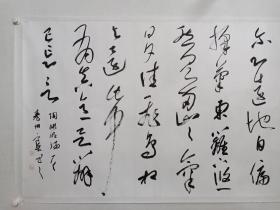 尔心远地自偏
採菊東籬下悠
然见南山山气
日夕佳飞鸟相
与还此中
有真意欲辨
已忘言
陶渊明诗